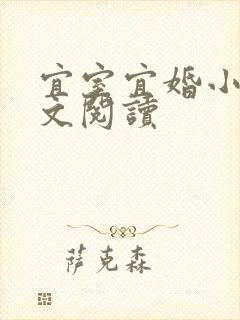 宜室宜婚小
文閱讀
萨克森